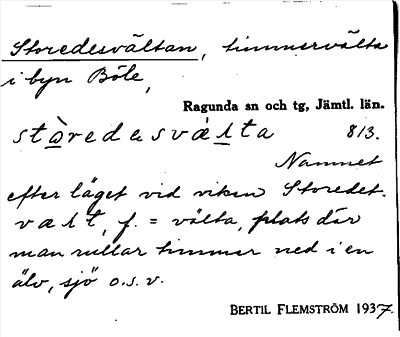 Storedesvältan, timmervälta
i byn Böle,
Ragunda sn och tg, Jämtl. län.
stàredesvæ̀lta 8/3.
Namnet
efter läget vid viken Storedet.
vælt, f. = välta, plats där
man rullar timmer ned i en
älv, sjö o.s.v.
BERTIL FLEMSTRÖM 1937.